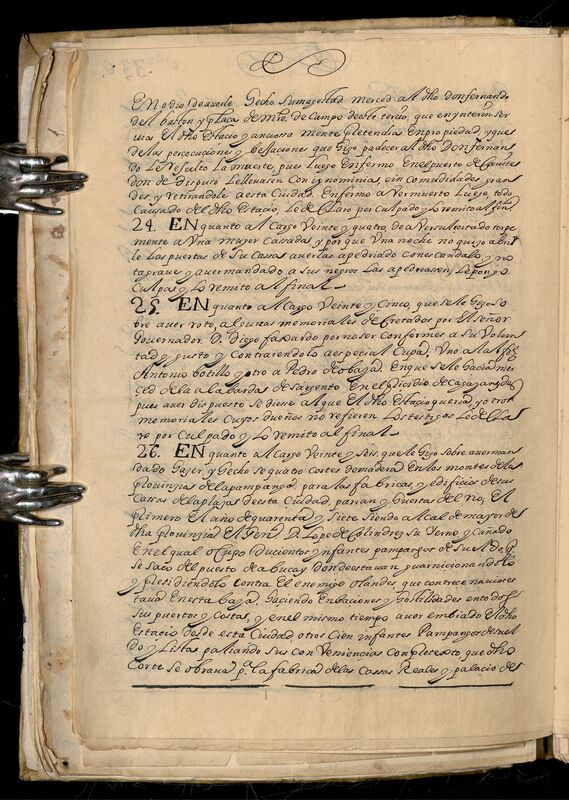 En odio de averle hecho su magestad merced al dho don fernando
del baston y plaça de Mre. de Campo deste tercio, que en ynterin ser
uia El dho Estacio y anciosa mente pletendia En propiedad, y que
de las percecuciones y besaciones que hiso padecer al dho Don fernan
do Le Resulto La muerte, pues luego Enfermo En el puerto de Cauite
don de dispuso Le llevasen Con ygnominia sin comodidades gran
des, y Retirandole a esta Ciudad, Enfermo a Vermuerto Luego, todo
Causado del dho Estacio, Le declaro por Culpado y Lo remito al fin
24. EN quanto al Cargo Veinte y quatro, de a Versulicitado torpe
mente a Vna muger Casada, y por que Vna noche no quiso abrir
le Las puertas de Su Cassa averlas apedriado con escandalo y no
ta grave y avermandado a sus negros Las apedreasen Le pongo
Culpas y Lo remito al final
25. EN quanto al Cargo Veinte y Cinco, que se le hiso so
bre aver roto, algunas memoriales decretados por El señor
Governador D. Diego faxardo por no ser conformes a su Volun
tad y gusto y Contraiendolo a especial Culpa, Vno al
Antonio botillo y otro a Pedro de obaja, En que se le hacia mer
ced de la alabarda de sargento En el presidio de Cagayan, des
pues aver dispuesto se diese al que El dho Estacio queria, y otros
memoriales Cuyos dueños no refieren Los testigos Le decla
ro por Culpado y Lo remito al final
26. EN quanto al Cargo Veinte y Seis, que le hiso sobre averman
dado haser, y hecho se quatro Cortes demadera En los montes de la
provinçia de la pampanga para las fabricas, y edificios de sus
Cassas de la plaça de esta Ciudad, parian, y huerta del rio, El
primero El año de quarenta y Siete Siendo alcal de mayor de
dha provinçia El D. Lope de Colindres, su Yerno y Cuñado
En el qual ocupo ducientos ynfantes pampangos de sueldo, q
Se saco del puesto de abucay donde estavan guarniciona ndolo
y presidiendolo Contra El enemigo olandes, que con trece navios es
tava En esta baya, haciendo Enbaciones y hostilidades en todos
Sus puertos y Costas, y en el mismo tiempo aver embiado El dho
Estacio desde esta Ciudad otros Cien infantes Pampangos de suel
do y Listas paliando sus con Veniencias Con pletexto que dho
Corte Se obrava pa. la fabrica de las Cassas Reales y palacio del